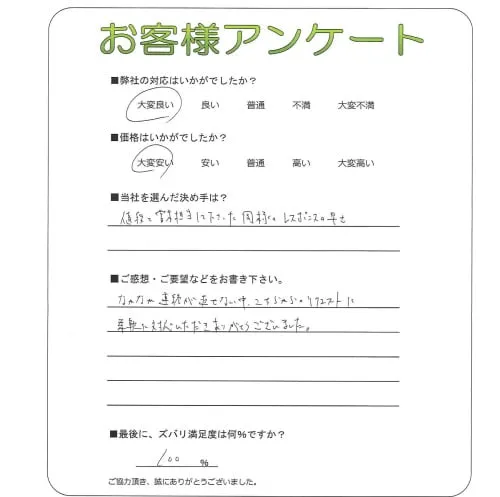 お客様アンケート
■弊社の対応はいかがでしたか?
大変良い 良い 普通 不満 大変不満
■価格はいかがでしたか?
大変安い 安い 普通 高い 大変高い
■当社を選んだ決め手は?
値段と 担当して下さった 同様の レスポンスの早さ
■ご感想・ご要望などをお書き下さい。
なかなか連絡が返せない中、こちらからのリクエストに
柔軟に対応いただきありがとうございました。
■最後に、ズバリ満足度は何%ですか?
100 %
ご協力頂き、誠にありがとうございました。